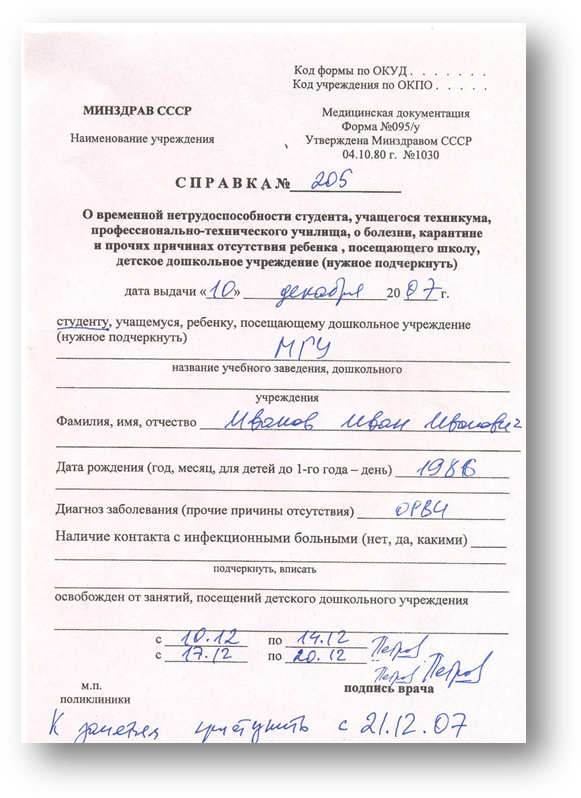 Код формы по ОКУД . . . . . . .
Код учреждения по ОКПО . . . . .
МИНЗДРАВ СССР
Медицинская документация
Форма №095/у
Наименование учреждения
Утверждена Минздравом СССР
04.10.80 г. №1030
СПРАВКА № 205
О временной нетрудоспособности студента, учащегося техникума,
профессионально-технического училища, о болезни, карантине
и прочих причинах отсутствия ребенка , посещающего школу,
детское дошкольное учреждение (нужное подчеркнуть)
дата выдачи «10» декабря 2007 г.
студенту, учащемуся, ребенку, посещающему дошкольное учреждение
(нужное подчеркнуть)
МГУ
название учебного заведения, дошкольного
учреждения
Фамилия, имя, отчество Иванов Иван Иванович
Дата рождения (год, месяц, для детей до 1-го года – день) 1986
Диагноз заболевания (прочие причины отсутствия) ОРВИ
Наличие контакта с инфекционными больными (нет, да, какими)
подчеркнуть, вписать
освобожден от занятий, посещений детского дошкольного учреждения
с 10.12 по 14.12 Петров
с 17.12 по 20.12 Петров Петров
м.п.
поликлиники
подпись врача
К занятиям приступить с 21.12.07